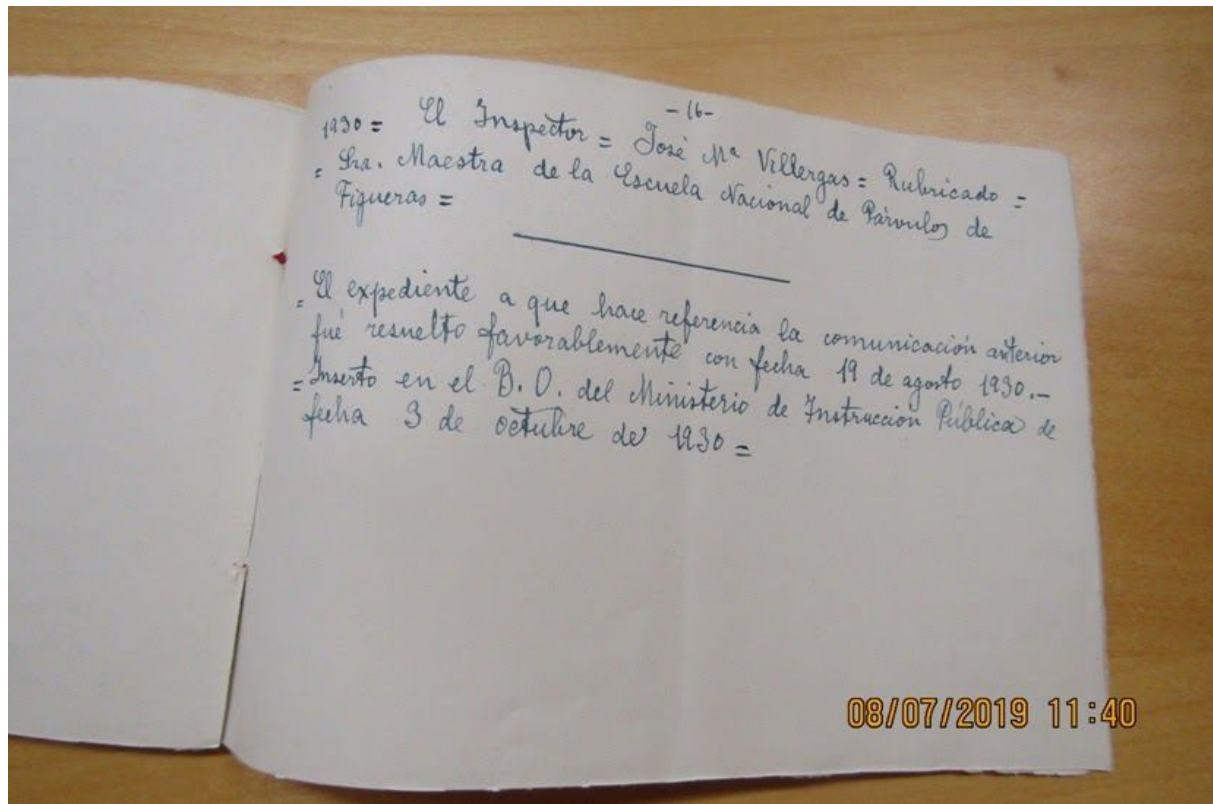 -16-
1930 = El Inspector = José Mª Villergas = Rubricado =
= Sra. Maestra de la Escuela Nacional de Párvulos de
Figueras =
= El expediente a que hace referencia la comunicación anterior
fué resuelto favorablemente con fecha 19 de agosto 1930.-
= Inserto en el B.O. del Ministerio de Instrucción Pública de
fecha 3 de octubre de 1930 =
08/07/2019 11:40